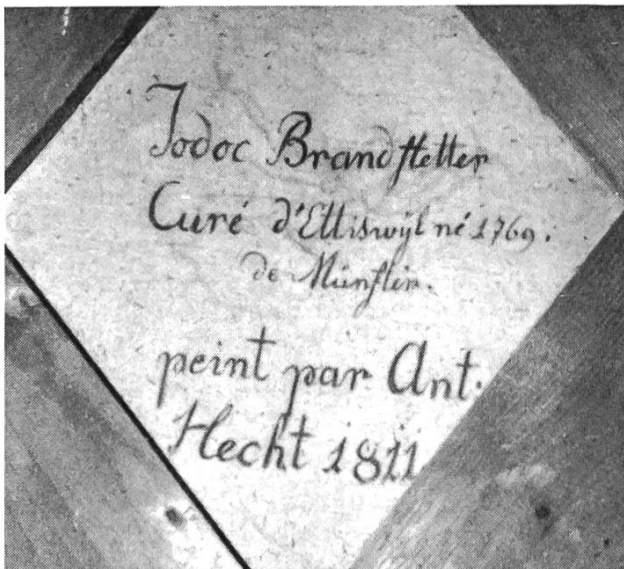 Jodoc Brandstetter
Curé d'Ettiswÿl né 1769.
de Münster.
peint par Ant.
Hecht 1811